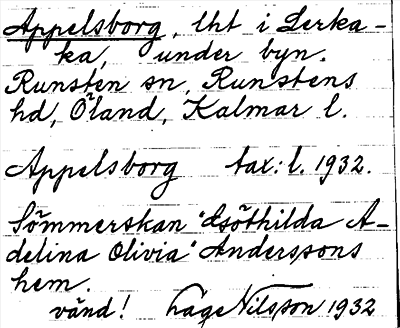 Appelsborg, lht i Lerka-
ka, under byn.
Runsten sn, Runstens
hd, Öland, Kalmar l.
Appelsborg tax: l. 1932.
Sömmerskan "Clothilda A-
delina Olivia" Anderssons
hem.
vänd! Håge Nilsson 1932